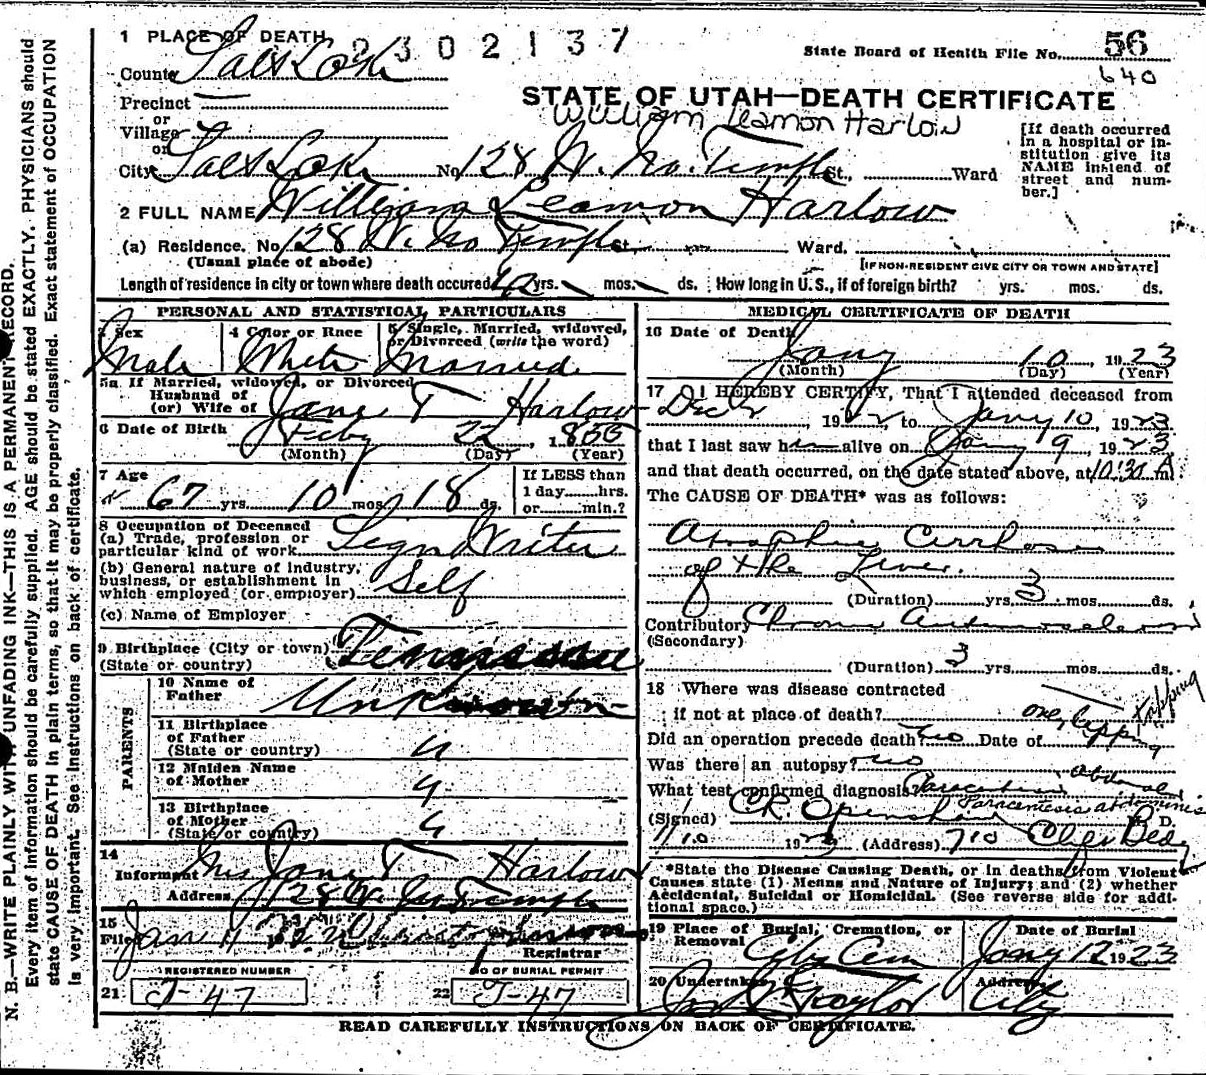 1 PLACE OF DEARTH 2302137
State Board of Health File No. 56
County Salt Lake
640
Precinct
STATE OF UTAH—DEATH CERTIFICATE
or
William Leamon Harlow
Village
or
City Salt Lake No 128 W. No. Temple St., Ward
[If death occurred in a hospital or institution give its NAME instead of street and number.]
2 FULL NAME William Leamon Harlow
(a) Residence. No. 128 W. No Temple St. Ward.
(Usual place of abode)
[IF NON-RESIDENT GIVE CITY OR TOWN AND STATE]
Length of residence in city or town where death occured yrs. mos. ds. How long in U. S., if of foreign birth? yrs. mos. ds.
PERSONAL AND STATISTICAL PARTICULARS
3 Sex Male
4 Color or Race White
5 Single, Married, widowed, or Divorced (write the word) Married
5a If Married, widowed, or Divorced
Husband of
(or) Wife of Jane T Harlow
6 Date of Birth Feby 22, 1855
(Month) (Day) (Year)
7 Age 67 yrs. 10 mos. 18 ds.
If LESS than
1 day......hrs.
or......min.?
8 Occupation of Deceased
(a) Trade, profession or
particular kind of work Sign Writer
(b) General nature of industry,
business, or establishment in
which employed (or employer) Self
(c) Name of Employer
9 Birthplace (City or town)
(State or country) Tennessee
PARENTS
10 Name of
Father Unknown
11 Birthplace
of Father
(State or country) "
12 Maiden Name
of Mother "
13 Birthplace
of Mother
(State or country) "
14
Informant Mrs Jane T Harlow
Address 128 W. No Temple
15
Filed Jan 11 23
Registrar
REGISTERED NUMBER
21 J-47
NO OF BURIAL PERMIT
22 J-47
MEDICAL CERTIFICATE OF DEATH
16 Date of Death
Jany 10 1923
(Month) (Day) (Year)
17 I HEREBY CERTIFY, That I attended deceased from
Dec, 192, to Jany 10, 1923
that I last saw him alive on Jany 9, 1923
and that death occurred, on the date stated above, at 10:30 A m.
The CAUSE OF DEATH* was as follows:
Atrophic Cirrhosis
of the Liver.
(Duration) yrs. 3 mos. ds.
Contributory
(Secondary)
(Duration) 3 yrs. mos. ds.
18 Where was disease contracted
if not at place of death?
Did an operation precede death? no Date of
only tapping
Was there an autopsy? no
What test confirmed diagnosis
Paracentesis abdominis
(Signed) C.R. Openshaw M. D.
1/10 1923 (Address) 710 Clift Bldg
*State the Disease Causing Death, or in deaths from Violent
Causes state (1) Means and Nature of Injury; and (2) whether
Accidental, Suicidal or Homicidal. (See reverse side for addi-
tional space.)
19 Place of Burial, Cremation, or
Removal City Cem
Date of Burial
Jany 12 1923
20 Undertaker Taylor
Address City
READ CAREFULLY INSTRUCTIONS ON BACK OF CERTIFICATE.
N. B.—WRITE PLAINLY WITH UNFADING INK—THIS IS A PERMANENT RECORD.
Every item of information should be carefully supplied. AGE should be stated EXACTLY. PHYSICIANS should
state CAUSE OF DEATH in plain terms, so that it may be properly classified. Exact statement of OCCUPATION
is very important. See instructions on back of certificate.